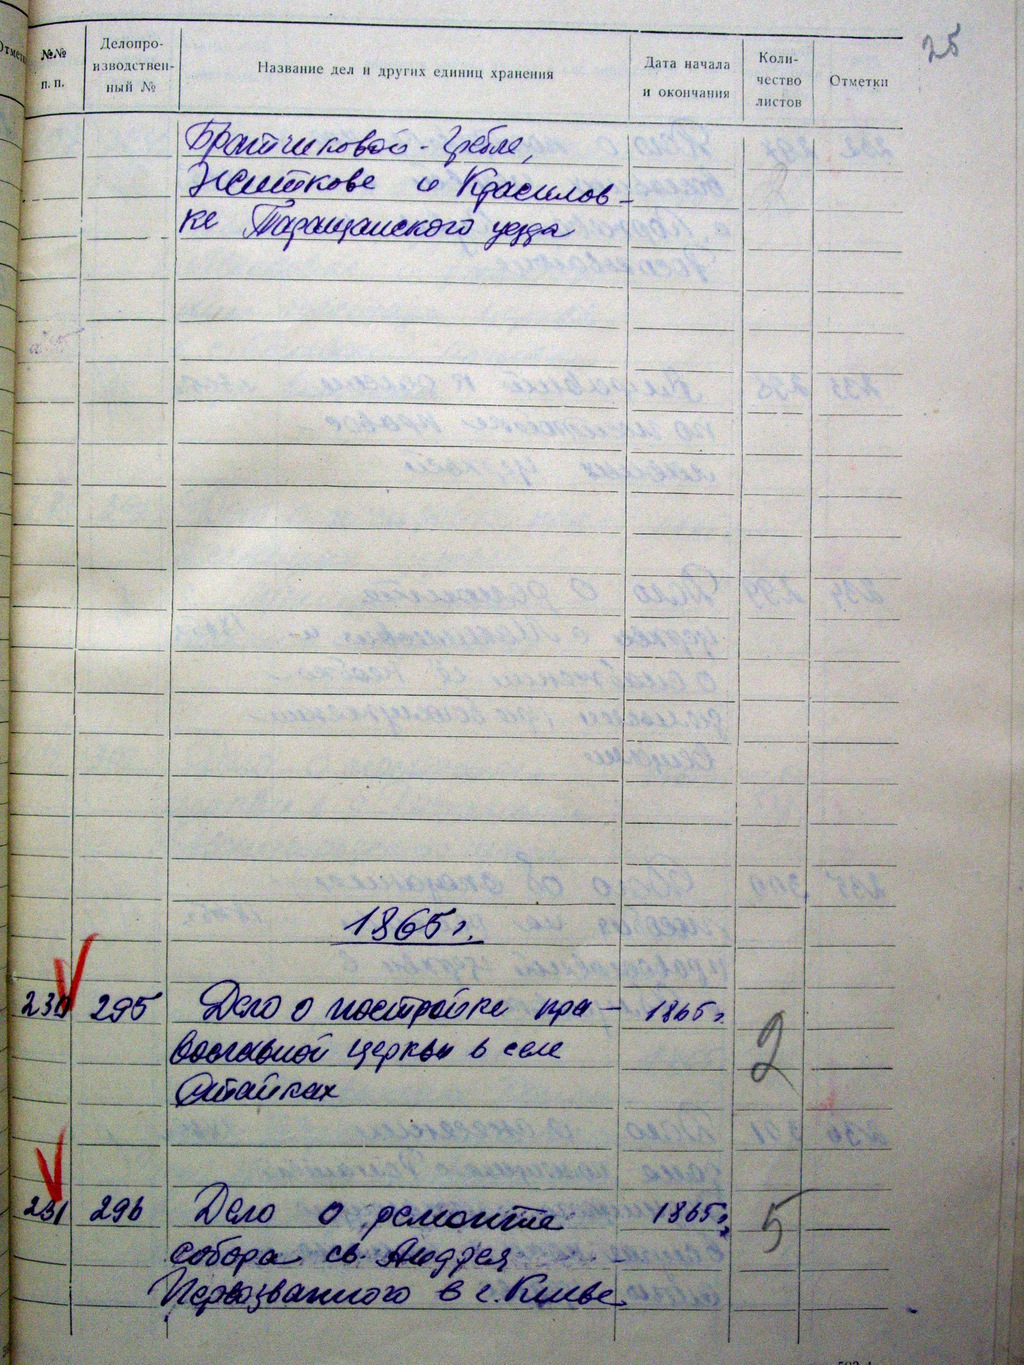 25
Отме
№№ п. п.
Делопро-
изводствен-
ный №
Название дел и других единиц хранения
Дата начала
и окончания
Коли-
чество
листов
Отметки
Братчиковой-Гребле,
Житкове и Красилов-
ке Таращанского уезда
1865 г.
230 295 Дело о постройке пра- 1865 г. 2
вославной церкви в селе
Стайках
231 296 Дело о ремонте 1865 г. 5
собора св. Андрея
Первозванного в г. Киеве